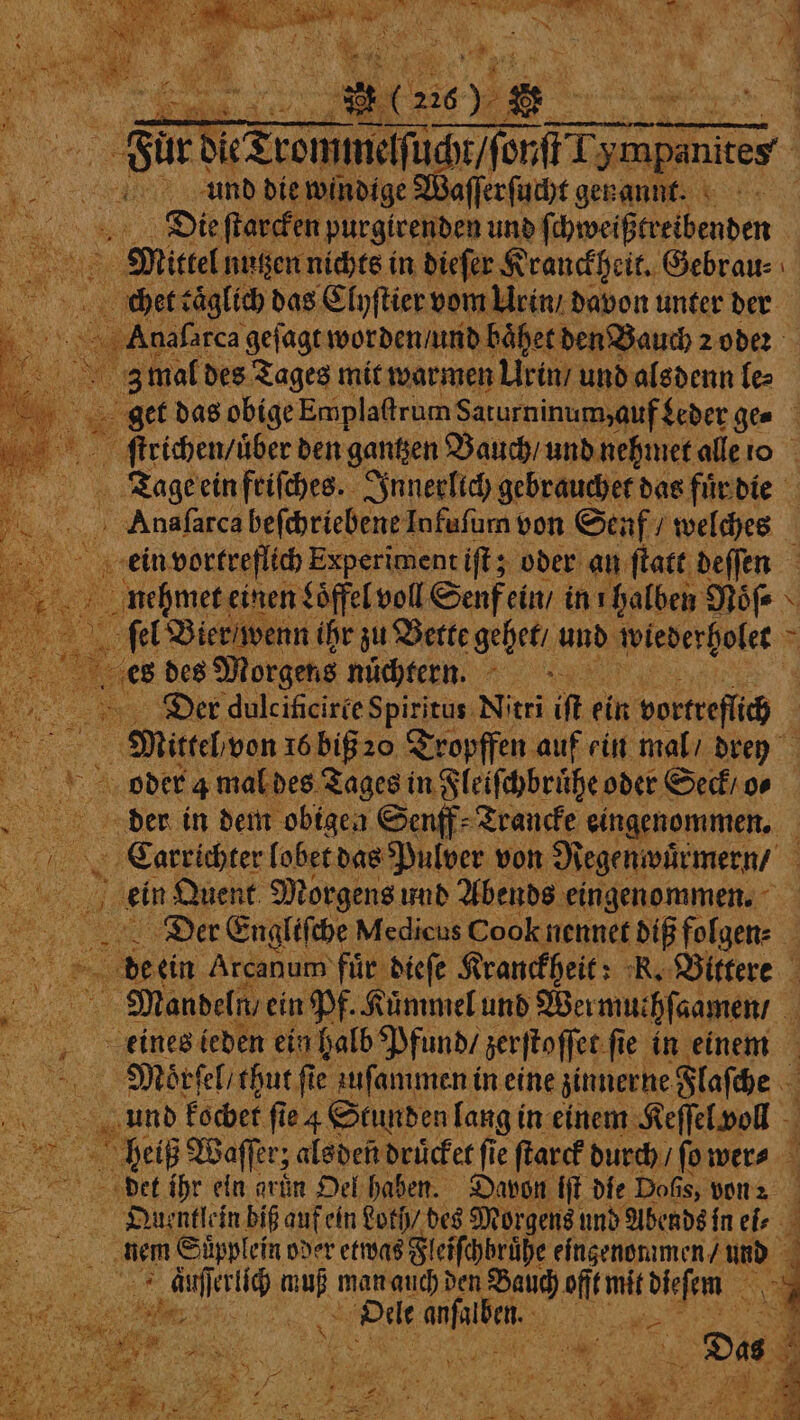 ❁ ( 226 ) ❁
Fuͤr die Trommelſucht/ſonſt Tympanites
und die windige Waſſerſucht genannt.
Die ſtarcken purgirenden und ſchweißtreibenden
Mittel nutzen nichts in dieſer Kranckheit. Gebrau⸗
chet taͤglich das Clyſtier vom Urin/ davon unter der
Anaſarca geſagt worden/und baͤhet den Bauch 2 oder
3 mal des Tages mit warmen Urin/ und alsdenn le⸗
get das obige Emplaſtrum Saturninum, auf Leder ge⸗
ſtrichen/uͤber den gantzen Bauch/ und nehmet alle 10
Tage ein friſches. Innerlich gebrauchet das fuͤr die
Anaſarca beſchriebene Infuſum von Senf/ welches
ein vortreflich Experiment iſt; oder an ſtatt deſſen
nehmet einen Loͤffel voll Senf ein/ in 1 halben Noͤſ⸗
ſel Bier/wenn ihr zu Bette gehet/ und wiederholet
es des Morgens nuͤchtern.
Der dulcificirte Spiritus Nitri iſt ein vortreflich
Mittel/von 16 biß 20 Tropffen auf ein mal/ drey
oder 4 mal des Tages in Fleiſchbruͤhe oder Seck/ o⸗
der in dem obigen Senff⸗Trancke eingenommen.
Carrichter lobet das Pulver von Regenwuͤrmern/
ein Quent Morgens und Abends eingenommen.
Der Engliſche Medicus Cook nennet diß folgen⸗
de ein Arcanum fuͤr dieſe Kranckheit: R. Bittere
Mandeln/ ein Pf. Kuͤmmel und Wermuthſaamen/
eines ieden ein halb Pfund/ zerſtoſſet ſie in einem
Moͤrſel/ thut ſie zuſammen in eine zinnerne Flaſche
und kochet ſie 4 Stunden lang in einem Keſſel voll
heiß Waſſer; alsdeñ druͤcket ſie ſtarck durch/ ſo wer⸗
det ihr ein gruͤn Oel haben. Davon iſt die Doſis, von 2
Quentlein biß auf ein Loth/ des Morgens und Abends in ei⸗
nem Suͤpplein oder etwas Fleiſchbruͤhe eingenommen/ und
aͤuſſerlich muß man auch den Bauch offt mit dieſem
Oele anſalben.
Das